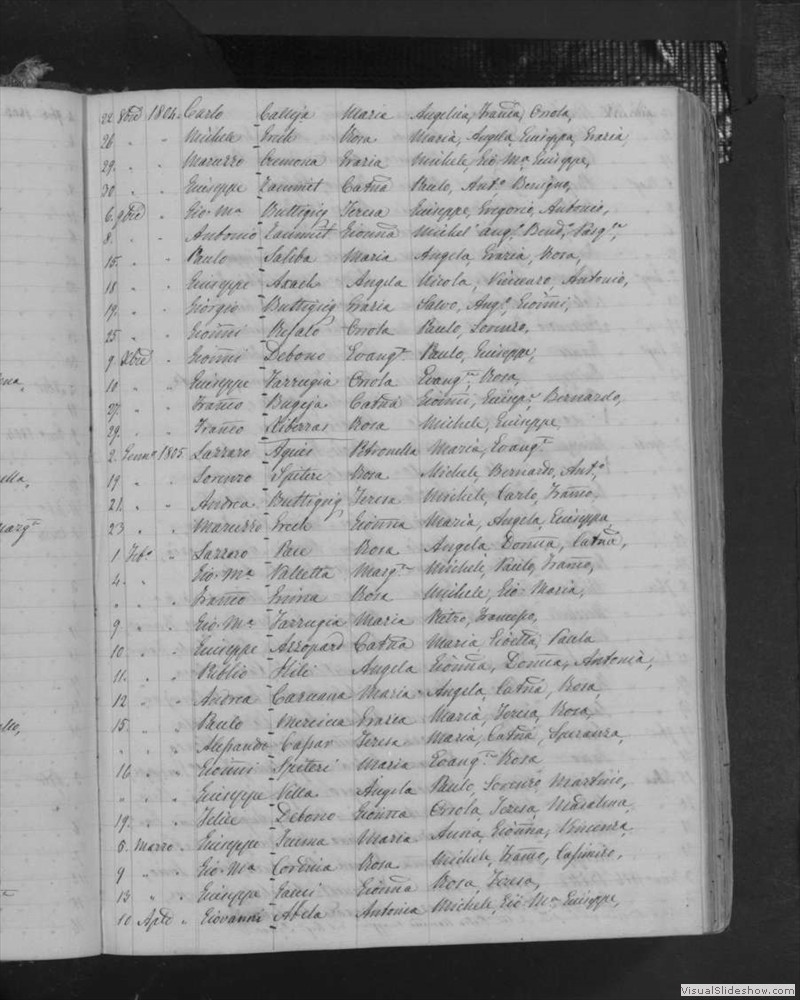 22 8bre 1804 Carlo Calleja Maria Angelica, Franca, Orsola,
26 " " Michele Grech Rosa Maria, Angela, Giuseppa, Grazia,
29. " " Maruzzo Cremona Grazia Michele, Gio Ma, Giuseppe,
30 " " Giuseppe Zammit Catna Paulo, Anto, Benigno,
6. 9bre " Gio. Ma Buttigieg Teresa Giuseppe, Gregorio, Antonio,
8. " " Antonio Zammit Gionna Michel Ang.
15. " " Paulo Saliba Maria Angela, Grazia, Rosa,
18 " " Giuseppe Axach Angela Nicola, Vincenzo, Antonio,
19. " " Giorgio Buttigieg Grazia Salvo, Ango, Gionni,
25 " " Gionni Orsola Paulo, Lorenzo,
9 Xbre " Gionni Debono Evanga Paulo, Giuseppe,
10 " " Giuseppe Farrugia Orsola Evanga, Rosa,
27. " " Franco Bugeja Catna Gionni, Giuseppe, Bernardo,
29. " " Franco Xiberras Rosa Michele, Giuseppe,
2. Genno 1805 Lazzaro Agius Petronella Maria, Evanga
19 " " Lorenzo Spiteri Rosa Michele, Bernardo, Anto,
21. " " Andrea Buttigieg Teresa Michele, Carlo, Franco,
23 " " Maruzzo Grech Gionna Maria, Angela, Giuseppa,
1 Febo " Lazzaro Pace Rosa Angela, Domca, Catna,
4. " Gio. Ma Valletta Marga Michele, Paulo, Franco,
" " " Franco Rosa Michele, Gio Maria,
9 " " Gio. Ma Farrugia Maria Pietro, Francesco,
10 " " Giuseppe Azzopard Catna Maria, Paula
11. " " Publio Xili Angela Gionna, Domca, Antonia,
12 " " Andrea Caruana Maria Angela, Catna, Rosa,
15. " " Paulo Mercieca Grazia Maria, Teresa, Rosa,
" " " Alessandro Cassar Teresa Maria, Catna, Speranza,
16. " " Gionni Spiteri Maria Evanga, Rosa
" " " Giuseppe Vella Angela Paulo, Lorenzo, Martino,
19. " " Felice Debono Gionna Orsola, Teresa, Madalena,
6. Marzo " Giuseppe Teuma Maria Anna, Gionna, Vincenza,
9 " " Gio. Ma Cordina Rosa Michele, Franco, Casimiro,
13 " " Giuseppe Gauci Gionna Rosa, Teresa,
10 Aple " Giovanni Abela Antonia Michele, Gio Ma, Giuseppe,
ella,
VisualSlideshow.com